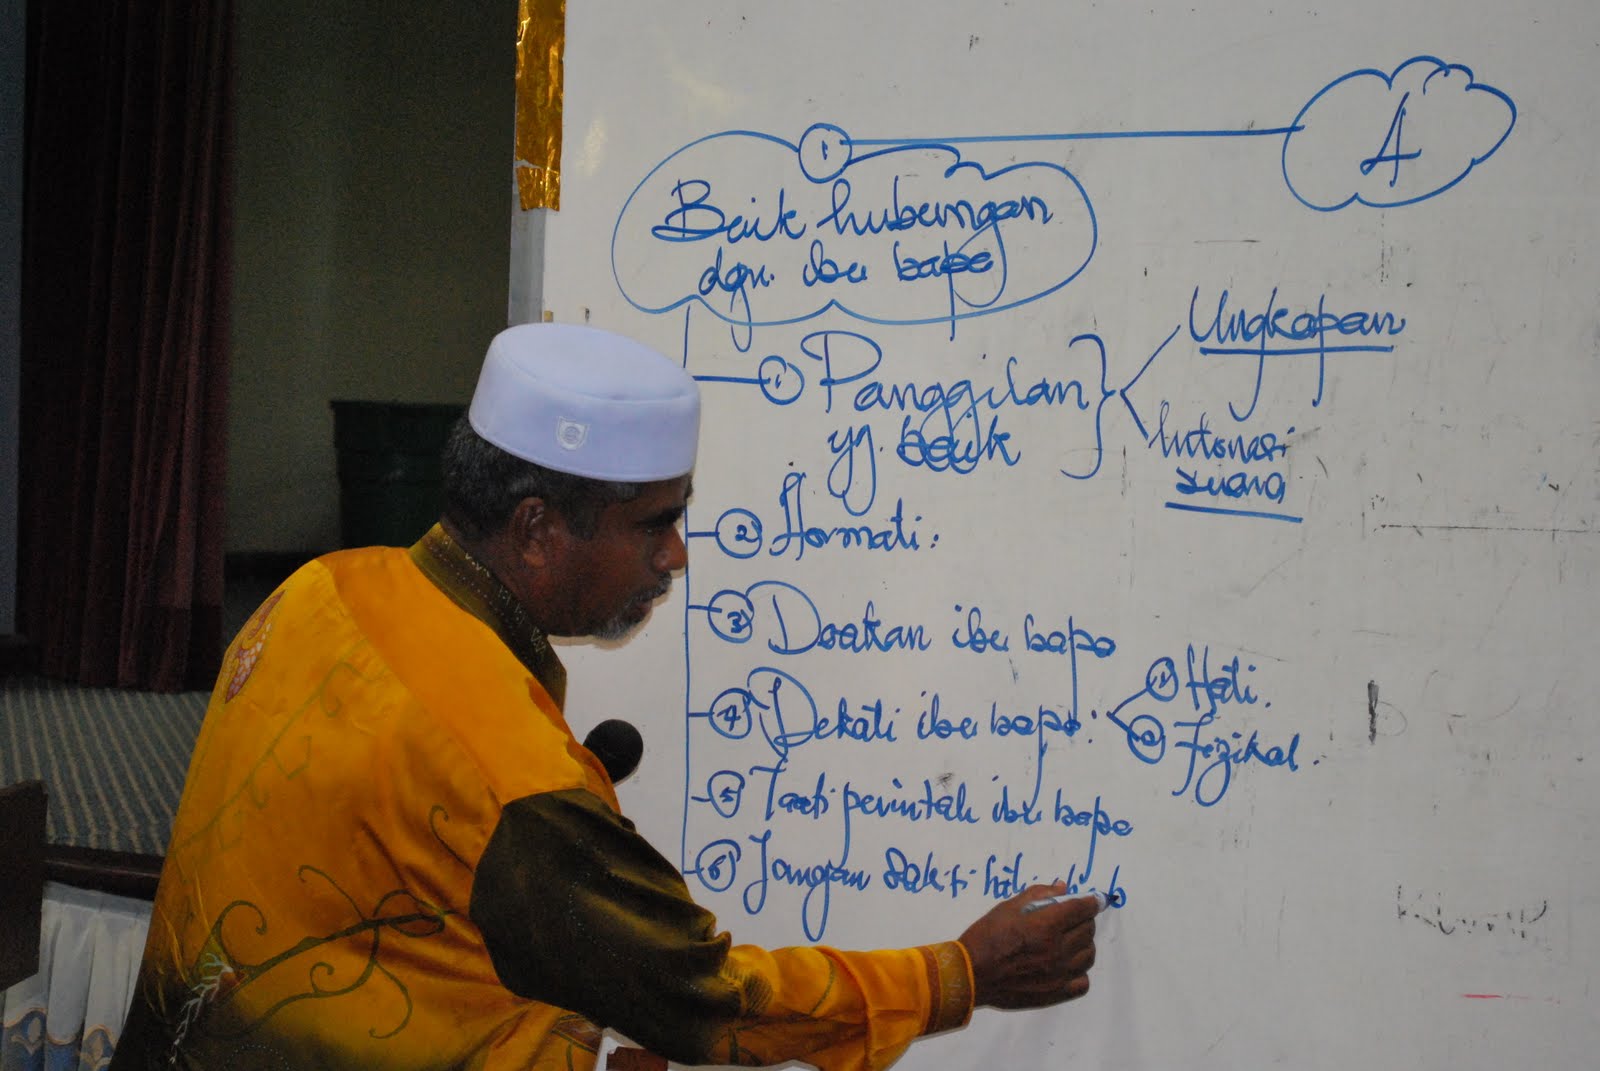 A
1
Baik hubungan
dgn. ibu bapa
1 Panggilan
yg. baik
Ungkapan
Intonasi
suara
2 Hormati:
3 Doakan ibu bapa
4 Dekati ibu bapa:
1 Hati.
2 Fizikal.
5 Taati perintah ibu bapa
6 Jangan sakiti hati b